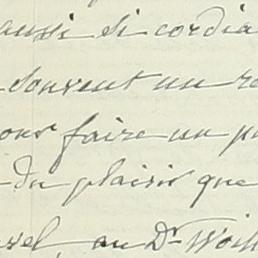 aussi si cordia
souvent un re
pour faire un p
du plaisir que
au Dr Woill